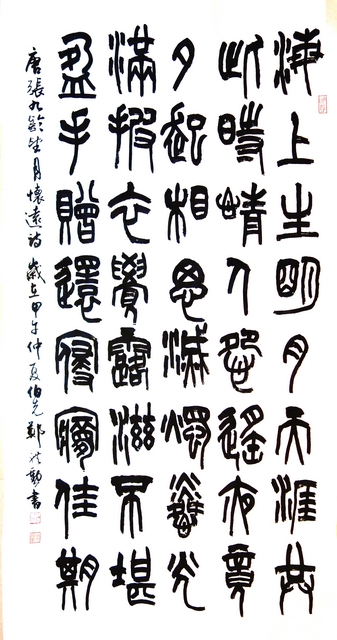 海上生明月天涯共
此時情人怨遙夜竟
夕起相思滅燭憐光
滿披衣覺露滋不堪
盈手贈還寢夢佳期
唐張九齡望月懷遠詩 歲在甲午仲夏伯先鄭 書